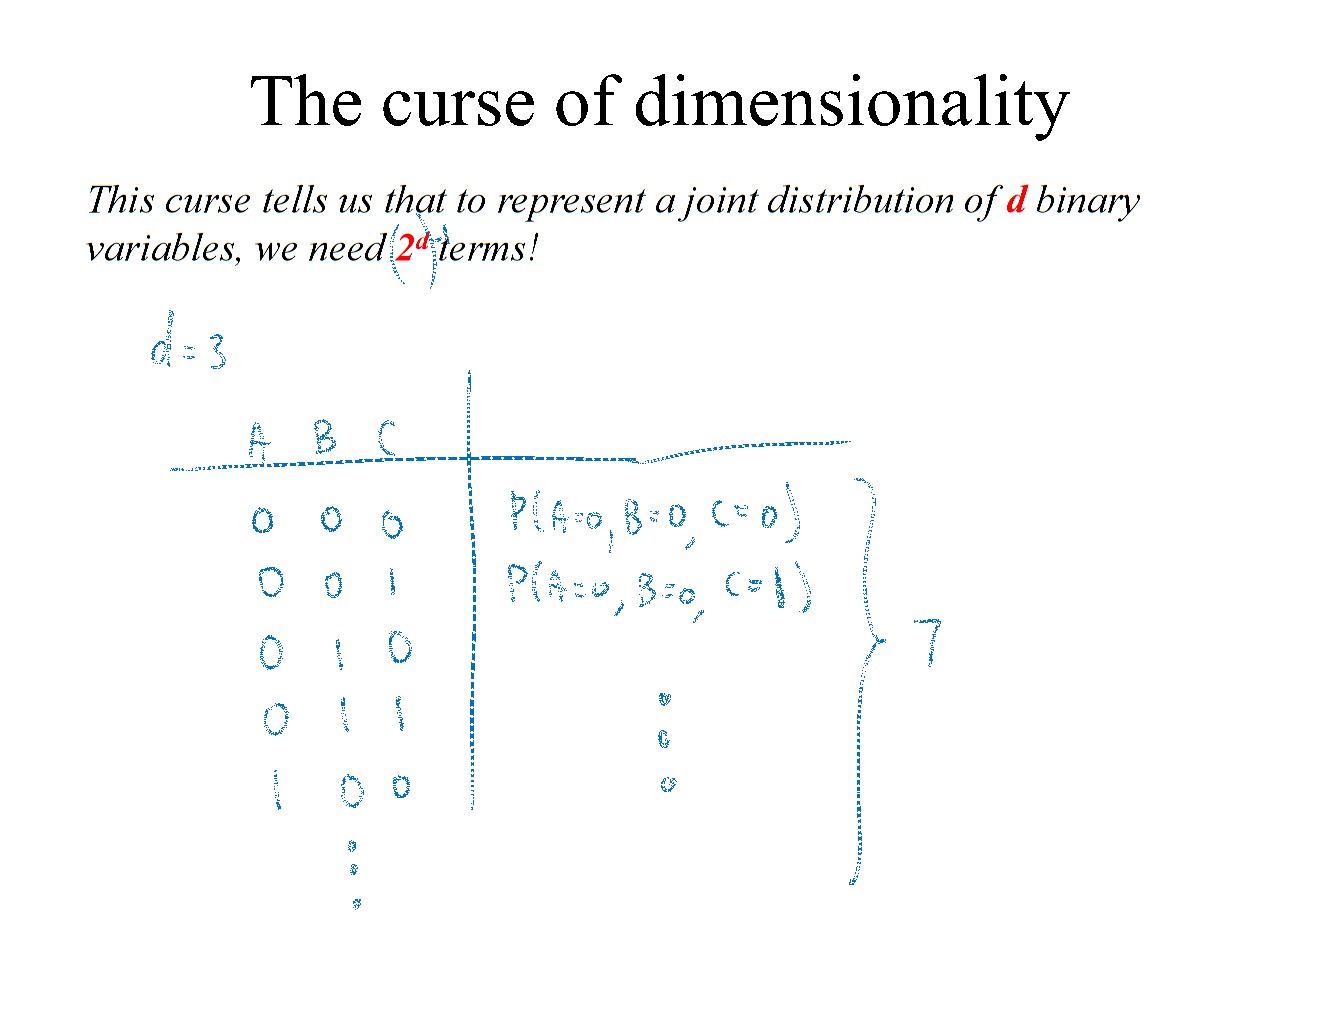 The curse of dimensionality
This curse tells us that to represent a joint distribution of d binary
variables, we need (2^d)-1 terms!
d = 3
A B C
0 0 0 P(A=0, B=0, C=0)
0 0 1 P(A=0, B=0, C=1)
0 1 0
7
0 1 1
1 0 0